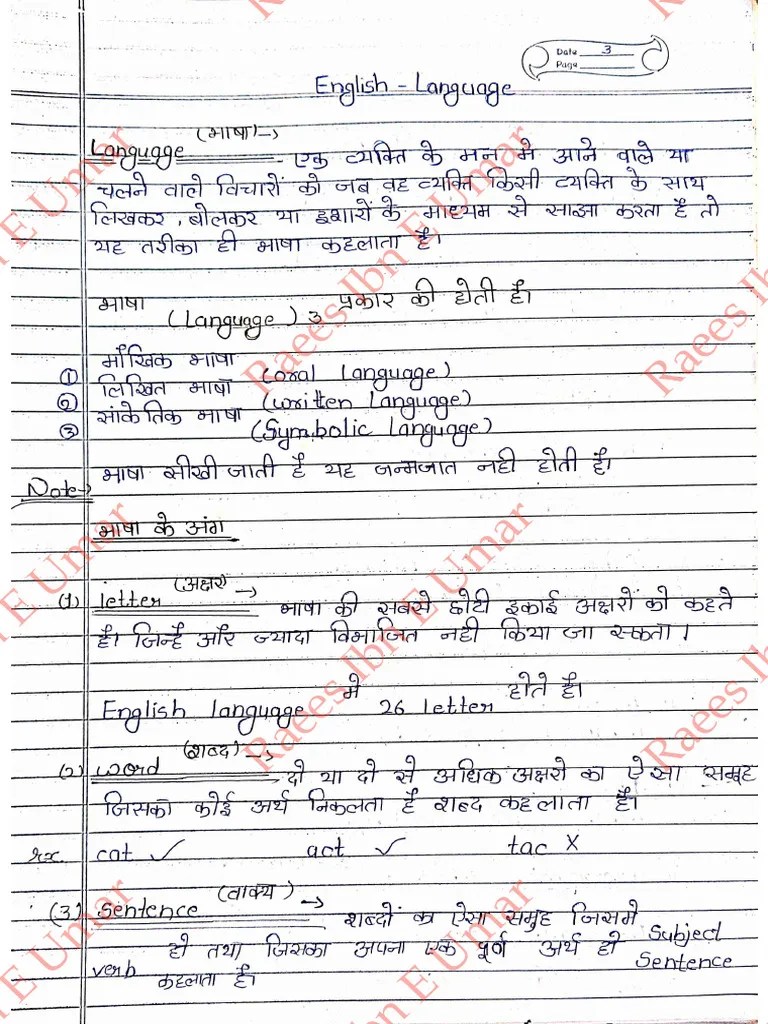 Date 3
Page
English - Language
Language (भाषा) → एक व्यक्ति के मन मे आने वाले या
चलने वाले विचारों को जब वह व्यक्ति किसी व्यक्ति के साथ
लिखकर, बोलकर या इशारों के माध्यम से साझा करता है तो
यह तरीका ही भाषा कहलाता है।
भाषा (Language) 3 प्रकार की होती है।
① मौखिक भाषा (oral language)
② लिखित भाषा (written language)
③ सांकेतिक भाषा (Symbolic language)
Note→ भाषा सीखी जाती है यह जन्मजात नही होती है।
भाषा के अंग
(1) letter (अक्षर) → भाषा की सबसे छोटी इकाई अक्षरों को कहते
है। जिन्हे और ज्यादा विभाजित नही किया जा सकता।
English language मे 26 letter होते है।
(2) word (शब्द) → दो या दो से अधिक अक्षरो का ऐसा समूह
जिसका कोई अर्थ निकलता है शब्द कहलाता है।
ex. cat ✓ act ✓ tac X
(3) Sentence (वाक्य) → शब्दों का ऐसा समूह जिसमे Subject
verb हो तथा जिसका अपना एक पूर्ण अर्थ हो Sentence
कहलाता है।
Raees Ibn E Umar